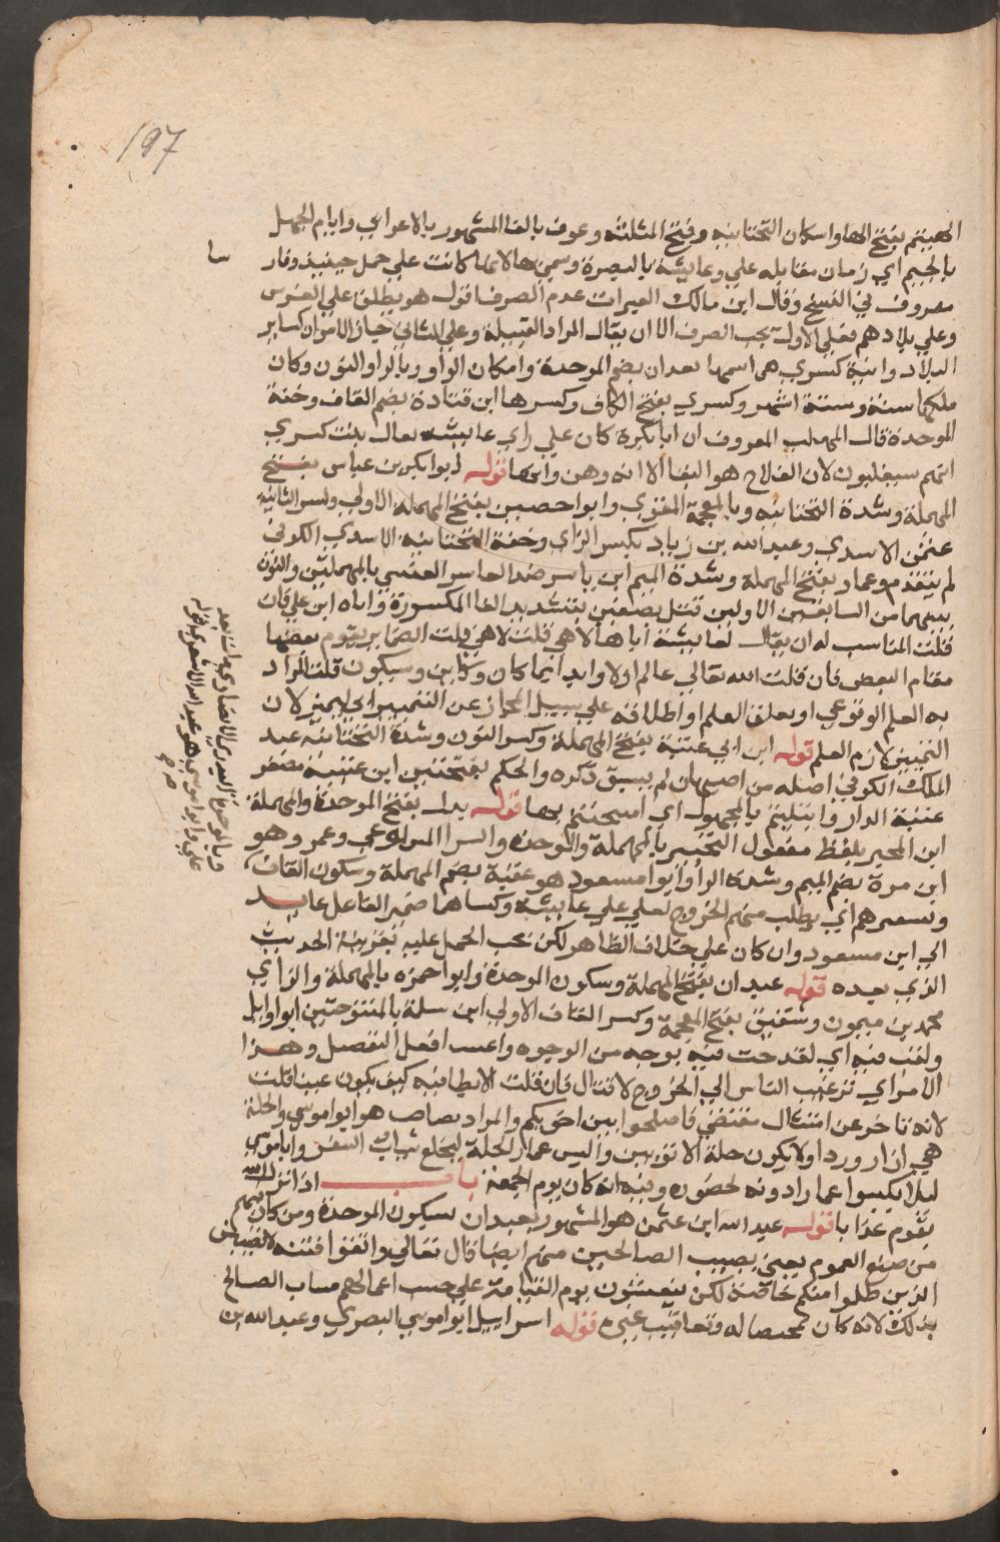 197
الهيثم بفتح الها واسكان التحتانيه وفتح المثلثه وعوف بالفا المشهور بالاعرابي وايام الجمل
بالجيم اي زمان مقابله علي وعايشة بالبصرة وسمي بها لانها كانت علي جمل حينيذ وفارس
مصروف في النسخ وقال ابن مالك الصواب عدم الصرف اقول هو يطلق علي الفرس
وعلي بلادهم فعلي الاول يجب الصرف الا ان يقال المراد القبيلة وعلي الثاني جاز الامران كساير
البلاد وابنة كسري هي اسمها بوران بضم الموحدة واسكان الواو وبالرا والنون وكان
ملكها سنة وستة اشهر وكسري بفتح الكاف وكسرها ابن قتادة بضم القاف وخفة
الموحدة قال المهلب المعروف ان ابا بكرة كان علي راي عايشه
انهم سيغلبون لان الفلاح هو البقا قوله ابو بكر بن عياش بفتح
المهملة وشدة التحتانيه وبالمعجمة المقري وابو احصين بفتح المهملة الاولي وكسر الثانيه
عثمن الاسدي وعبد الله بن زياد بكسر الزاي وخفة التحتانيه الاسدي الكوفي
لم يتقدم وعمار بفتح المهملة وشدة الميم ابن ياسر ضد العاسر العنسي بالمهملتين والنون
بينهما من السابقين الاولين قتل بصفين بتشديد الفا المكسورة واياه ابن علي فان
قلت المناسب له ان يقال لعايشة اياها لا هي قلت لا هي قلت الضماير يقوم بعضها
مقام البعض فان قلت الله تعالي عالم اولا وابدا بما كان وكاين وسيكون قلت المراد
به العلم الوقوعي او تعلق العلم او اطلاقه علي سبيل المجاز عن التمييز اي ليميز لان
التمييز لازم العلم قوله ابن ابي غنية بفتح المعجمة وكسر النون وشدة التحتانيه عبد
الملك الكوفي اصله من اصبهان لم يسبق ذكره والحكم بفتحتين ابن عتيبة مصغر
عتبة الدار وابتليتم بالمجهول اي امتحنتم بها قوله بدل بفتح الموحدة والمهملة
ابن المحبر بلفظ مفعول التحبير بالمهملة والموحدة والرا وعمرو هو
ابن مرة بضم الميم وشدة الرا وابو مسعود هو عقبة بضم المهملة وسكون القاف
اي يطلب منهم الخروج لعلي علي عايشة وكساهما ضمير الفاعل عايد
الي ابن مسعود وان كان علي خلاف الظاهر لكن يجب الحمل عليه بقرينة الحديث
الذي بعده قوله عبدان بفتح المهملة وسكون الموحدة وابو احمزه بالمهملة والزاي
محمد بن ميمون وشقيق بفتح المعجمة وكسر القاف الاولي ابن سلمة بالمفتوحتين ابو اوايل
ولقلت فيه اي لقدحت فيه بوجه من الوجوه واعيب افعل التفضيل وهذا
الامر اي ترغيب الناس الي الخروج للقتال فان قلت الابطا فيه كيف يكون عيبا قلت
لانه تاخر عن امتثال مقتضي فاصلحوا بين اخويكم والمراد بصاحب هو ابو اموسي والحلة
هي ازار وردا ولا يكون حلة الا ثوبين والبس عمار الحلة ليخلع ثياب السفر وابا موسي
ليلا يكسوا عمارا دونه لحضوره وفيه انه كان يوم الجمعة باب اذا انزل الله
بقوم عذابا قوله عبد الله ابن عثمن هو المشهور بعبدان بسكون الموحدة ومن كان فيهم
من صيغ العموم يعني يصيب الصالحين منهم ايضا قال تعالي واتقوا فتنه لا تصيبن
الذين ظلموا منكم خاصة لكن يبعثون يوم القيامة علي حسب اعمالهم فيثاب الصالح
بذلك لانه كان تمحيصا له ويعاقب غيره قوله اسراييل ابو اموسي البصري وعبد الله بن